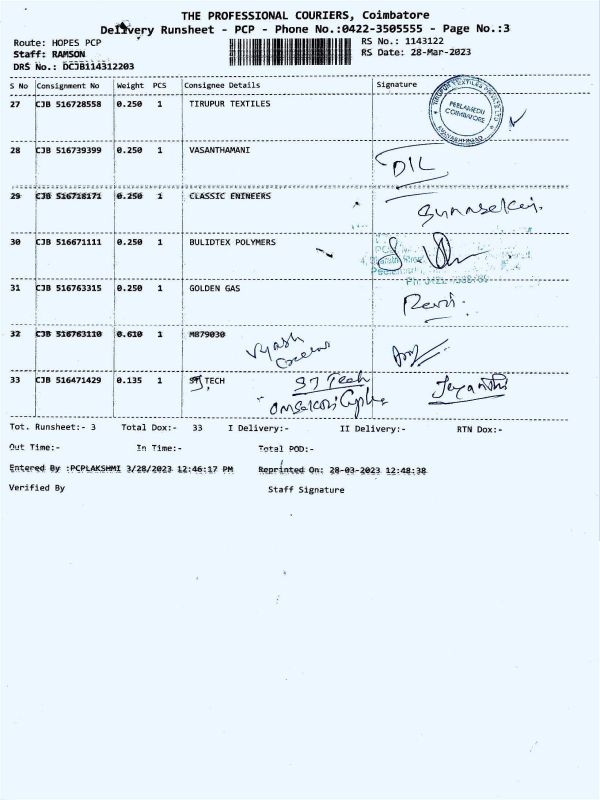 THE PROFESSIONAL COURIERS, Coimbatore
Delivery Runsheet - PCP - Phone No.:0422-3505555 - Page No.:3
Route: HOPES PCP
RS No.: 1143122
Staff: RAMSON
RS Date: 28-Mar-2023
DRS No.: DCJB114312203
S No Consignment No Weight PCS Consignee Details Signature
27 CJB 516728558 0.250 1 TIRUPUR TEXTILES
PEELAMEDU
COIMBATORE
28 CJB 516739399 0.250 1 VASANTHAMANI
29 CJB 516718171 0.250 1 CLASSIC ENINEERS
30 CJB 516671111 0.250 1 BULIDTEX POLYMERS
31 CJB 516763315 0.250 1 GOLDEN GAS
32 CJB 516763110 0.610 1 M879030
33 CJB 516471429 0.135 1 ST TECH ST Tech Jayanthi
Tot. Runsheet:- 3 Total Dox:- 33 I Delivery:- II Delivery:- RTN Dox:-
Out Time:- In Time:- Total POD:-
Entered By :PCPLAKSHMI 3/28/2023 12:46:17 PM Reprinted On: 28-03-2023 12:48:38
Verified By Staff Signature